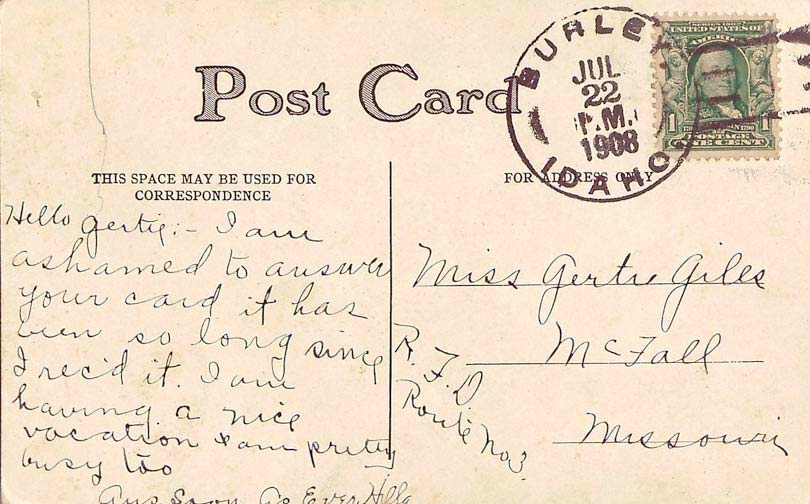 Post Card
BURLEY
JUL
22
P.M.
1908
IDAHO
SERIES 1902
UNITED STATES OF
AMERICA
1 1
POSTAGE
ONE CENT
THIS SPACE MAY BE USED FOR
CORRESPONDENCE
FOR ADDRESS ONLY
Hello Gertie:- I am
ashamed to answer
your card it has
been so long since
I rec'd it. I am
having a nice
vacation & am pretty
busy too
Ans Soon As Ever
Miss Gertie Giles
McFall
R.F.D.
Route No 3
Missouri